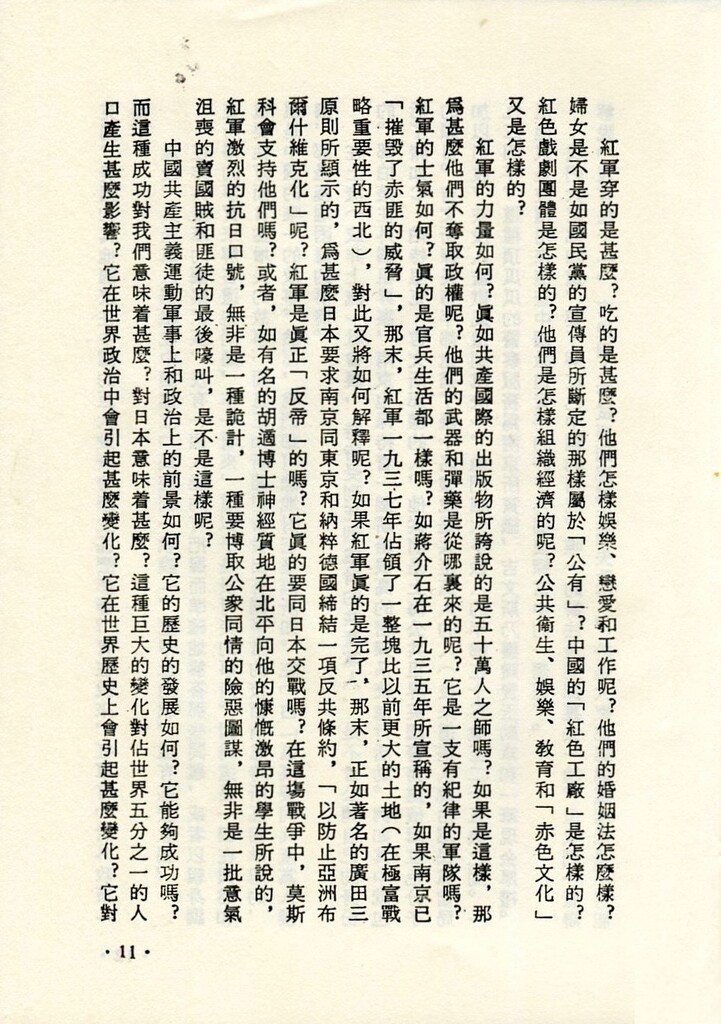 紅軍穿的是甚麼？吃的是甚麼？他們怎樣娛樂、戀愛和工作呢？他們的婚姻法怎麼樣？
婦女是不是如國民黨的宣傳員所斷定的那樣屬於「公有」？中國的「紅色工廠」是怎樣的？
紅色戲劇團體是怎樣的？他們是怎樣組織經濟的呢？公共衛生、娛樂、教育和「赤色文化」
又是怎樣的？
紅軍的力量如何？眞如共產國際的出版物所誇說的是五十萬人之師嗎？如果是這樣，那
爲甚麼他們不奪取政權呢？他們的武器和彈藥是從哪裏來的呢？它是一支有紀律的軍隊嗎？
紅軍的士氣如何？眞的是官兵生活都一樣嗎？如蔣介石在一九三五年所宣稱的，如果南京已
「摧毀了赤匪的威脅」，那末，紅軍一九三七年佔領了一整塊比以前更大的土地（在極富戰
略重要性的西北），對此又將如何解釋呢？如果紅軍眞的是完了，那末，正如著名的廣田三
原則所顯示的，爲甚麼日本要求南京同東京和納粹德國締結一項反共條約，「以防止亞洲布
爾什維克化」呢？紅軍是眞正「反帝」的嗎？它眞的要同日本交戰嗎？在這塲戰爭中，莫斯
科會支持他們嗎？或者，如有名的胡適博士神經質地在北平向他的慷慨激昂的學生所說的，
紅軍激烈的抗日口號，無非是一種詭計，一種要博取公衆同情的險惡圖謀，無非是一批意氣
沮喪的賣國賊和匪徒的最後嚎叫，是不是這樣呢？
中國共產主義運動軍事上和政治上的前景如何？它的歷史的發展如何？它能夠成功嗎？
而這種成功對我們意味着甚麼？對日本意味着甚麼？這種巨大的變化對佔世界五分之一的人
口產生甚麼影響？它在世界政治中會引起甚麼變化？它在世界歷史上會引起甚麼變化？它對
·11·